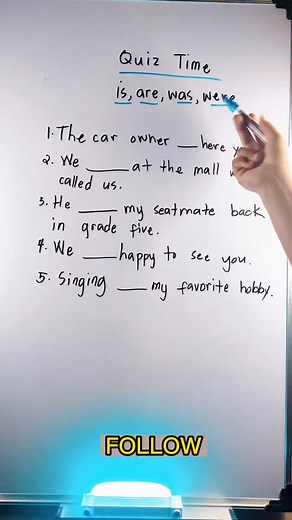 Quiz Time
is, are, was, were
1. The car owner ___ here
2. We ___ at the mall
called us.
3. He ___ my seatmate back
in grade five.
4. We ___ happy to see you.
5. Singing ___ my favorite hobby.
FOLLOW